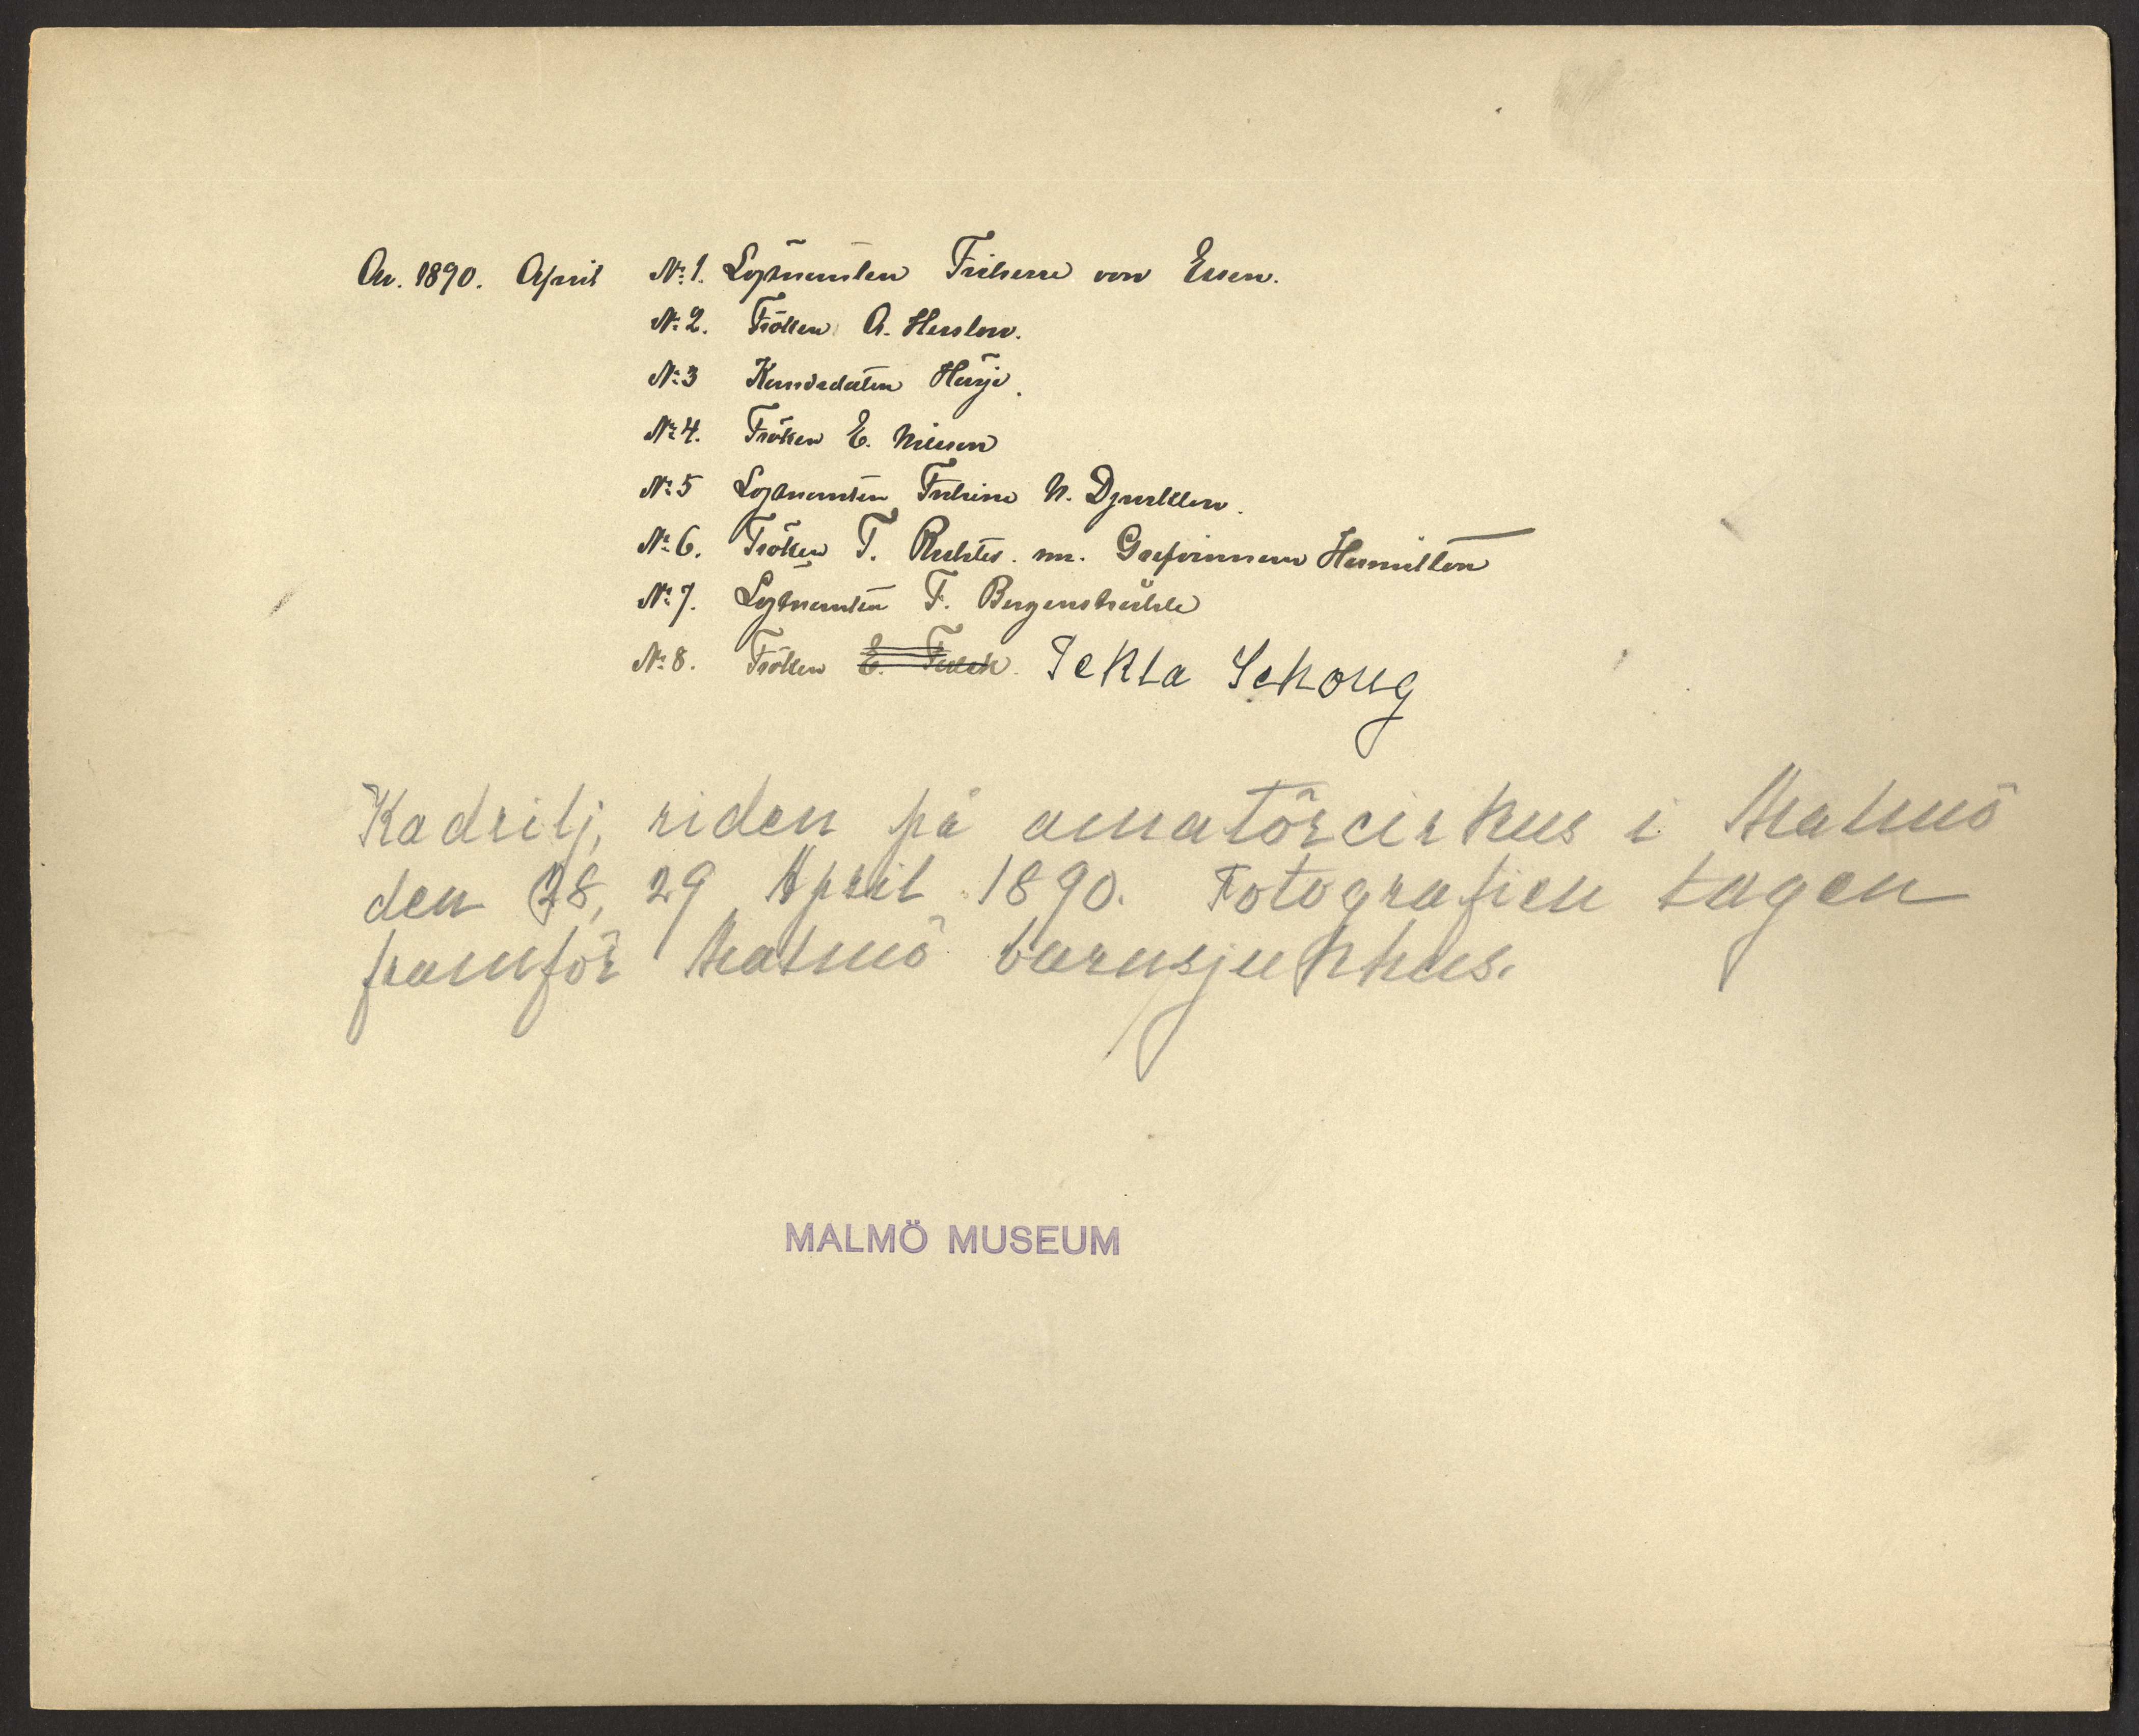 An. 1890. April No: 1. Löjtnanten Friherre von Essen.
No: 2. Fröken A. Herslow.
No: 3 Kandidaten
No: 4. Fröken E. Nilsson
No: 5 Löjtnanten Friherre N. Djurklow.
No: 6. Fröken T. Richter. nu. Grefvinnan Hamilton
No: 7. Löjtnanten F. Bergenstråhle
No: 8. Fröken E. Tekla Schoug
Kadrilj, riden på amatörcirkus i Malmö
den 28, 29 April 1890. Fotografien tagen
framför Malmö barnsjukhus.
MALMÖ MUSEUM